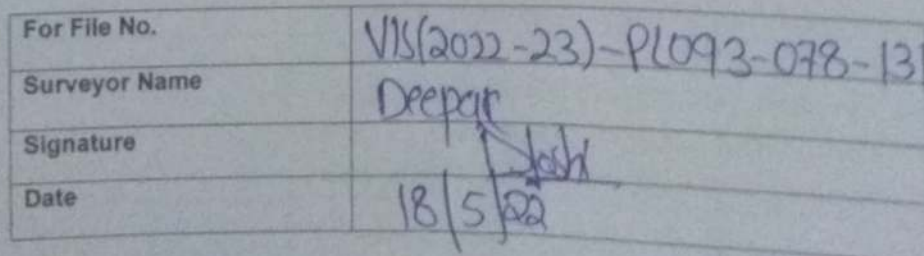 For File No. VIS(2022-23)-PL093-078-13
Surveyor Name Deepak
Signature Joshi
Date 18/5/22